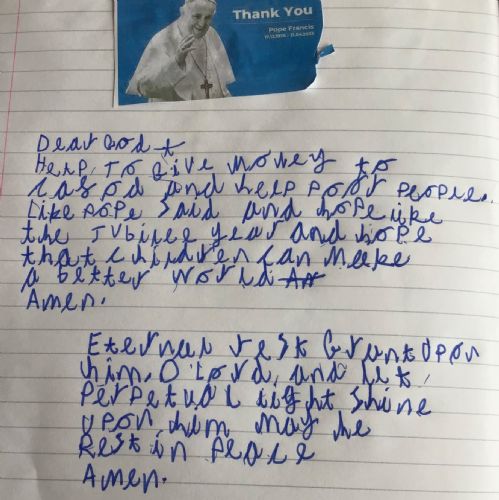 Thank You
Pope Francis
17.12.1936 - 21.04.2025
Dear God
Help To Give Money to
Cafod and help poor people.
Like pope said and hope like
the Jubilee year and hope
that children can make
a better world
Amen.
Eternal rest Grant Upon
him, O Lord, and let
perpetual light shine
upon him may he
Rest in peace
Amen.